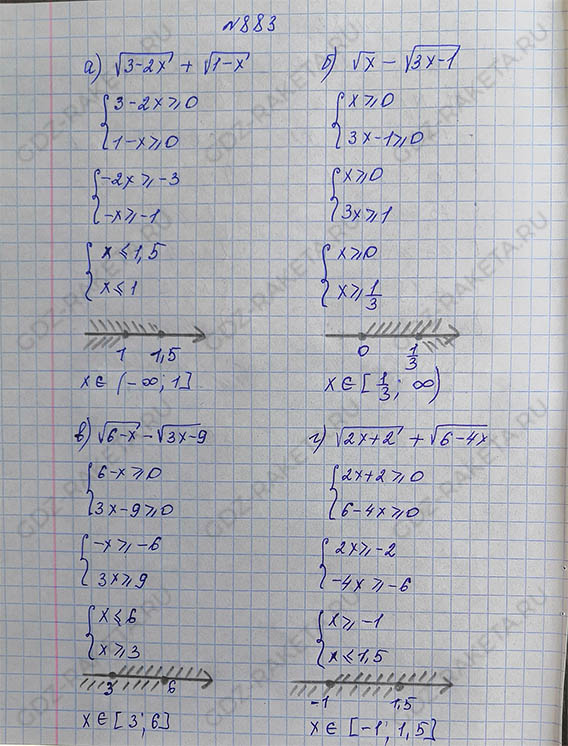 №883
а) √(3-2x) + √(1-x)
{ 3-2x ⩾ 0
1-x ⩾ 0
{ -2x ⩾ -3
-x ⩾ -1
{ x ⩽ 1,5
x ⩽ 1
1 1,5
x ∈ (-∞; 1]
б) √x - √(3x-1)
{ x ⩾ 0
3x-1 ⩾ 0
{ x ⩾ 0
3x ⩾ 1
{ x ⩾ 0
x ⩾ 1/3
0 1/3
x ∈ [1/3; ∞)
в) √(6-x) - √(3x-9)
{ 6-x ⩾ 0
3x-9 ⩾ 0
{ -x ⩾ -6
3x ⩾ 9
{ x ⩽ 6
x ⩾ 3
3 6
x ∈ [3; 6]
г) √(2x+2) + √(6-4x)
{ 2x+2 ⩾ 0
6-4x ⩾ 0
{ 2x ⩾ -2
-4x ⩾ -6
{ x ⩾ -1
x ⩽ 1,5
-1 1,5
x ∈ [-1; 1,5]
GDZ-RAKETA.RU